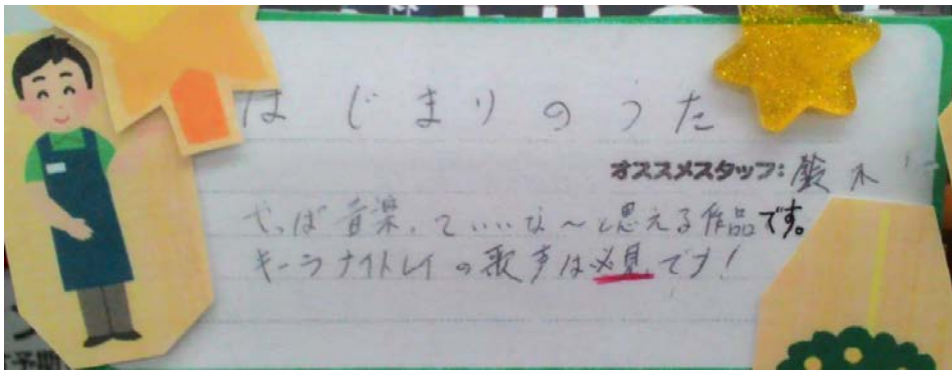 はじまりのうた
オススメスタッフ: 鈴木
やっぱ音楽っていいな～と思える作品です。
キーラナイトレイの歌声は必見です!
予期